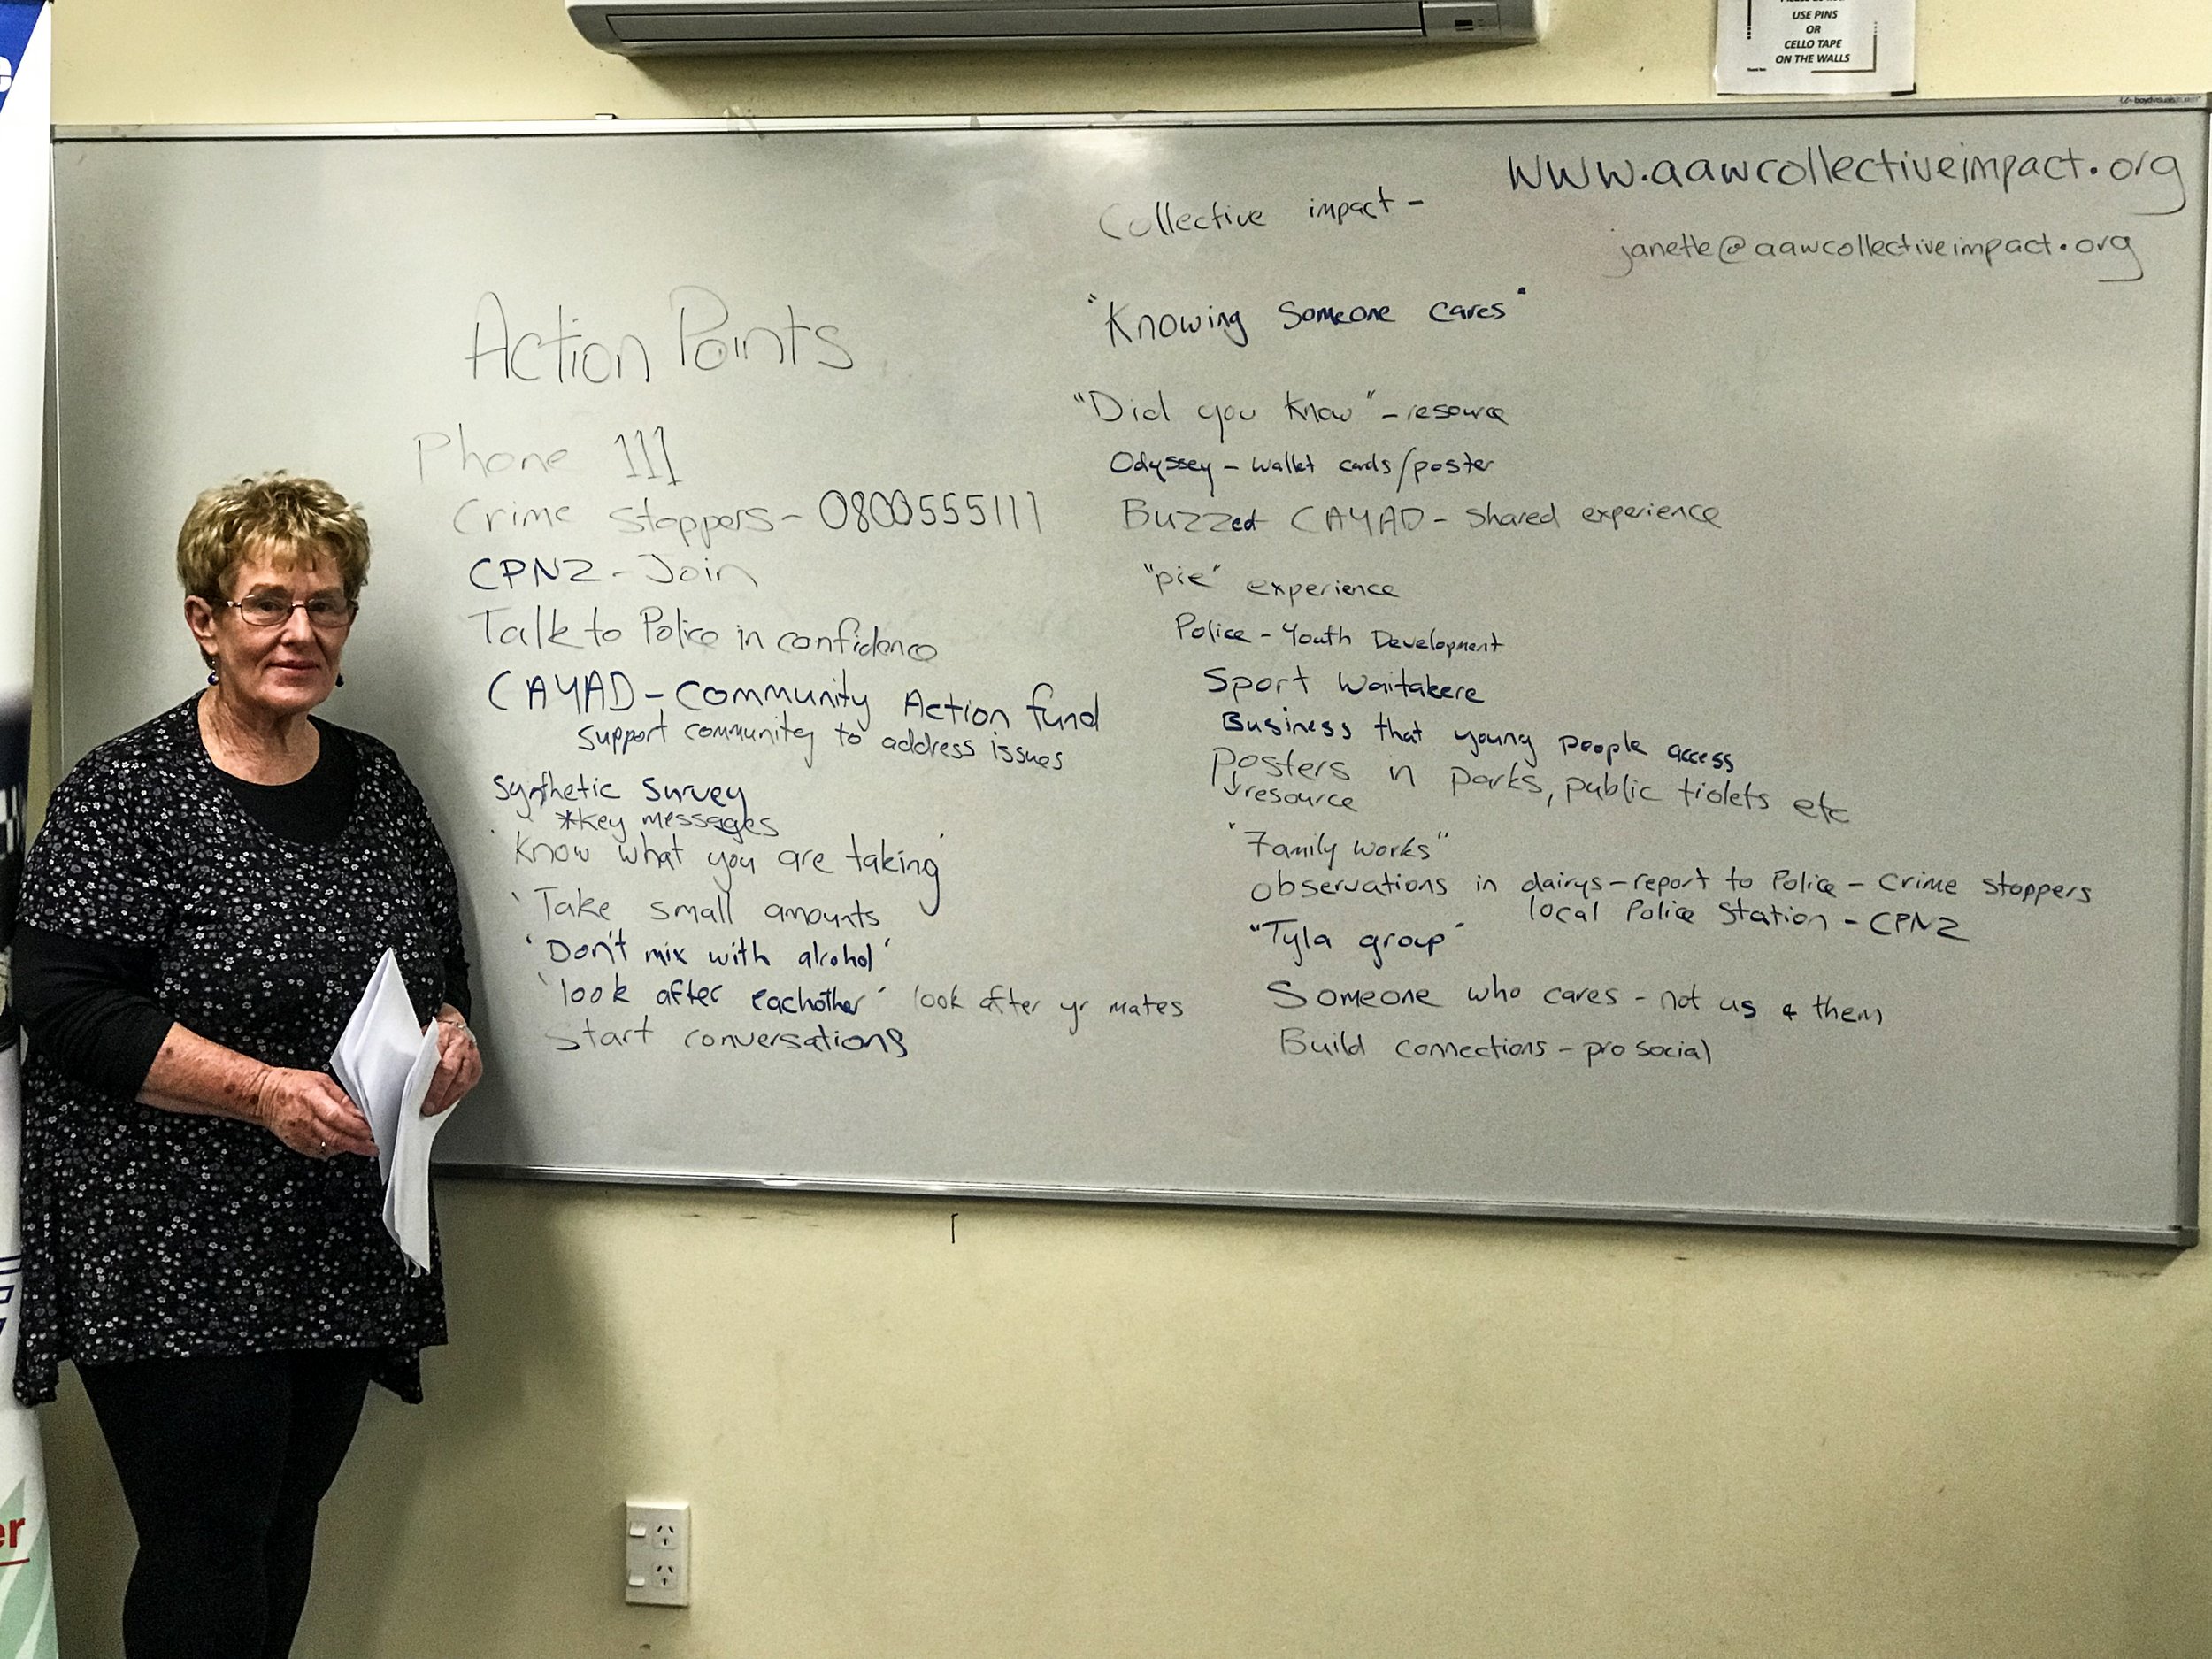 USE PINS
OR
CELLO TAPE
ON THE WALLS
www.aawcollectiveimpact.org
Collective impact -
janette@aawcollectiveimpact.org
Action Points
Phone 111
Crime stoppers - 0800555111
CPNZ - Join
Talk to Police in confidence
CAYAD - Community Action fund
support community to address issues
Synthetic Survey
*key messages
'Know what you are taking'
'Take small amounts
'Don't mix with alcohol'
'look after eachother' look after yr mates
Start conversations
"Knowing Someone cares"
"Did you know" - resource
Odyssey - wallet cards/poster
Buzzed CAYAD - shared experience
"pie" experience
Police - Youth Development
Sport Waitakere
Business that young people access
posters in parks, public tiolets etc
↓resource
"Family works"
observations in dairys - report to Police - Crime stoppers
local Police Station - CPNZ
"Tyla group"
Someone who cares - not us & them
Build connections - pro social
er